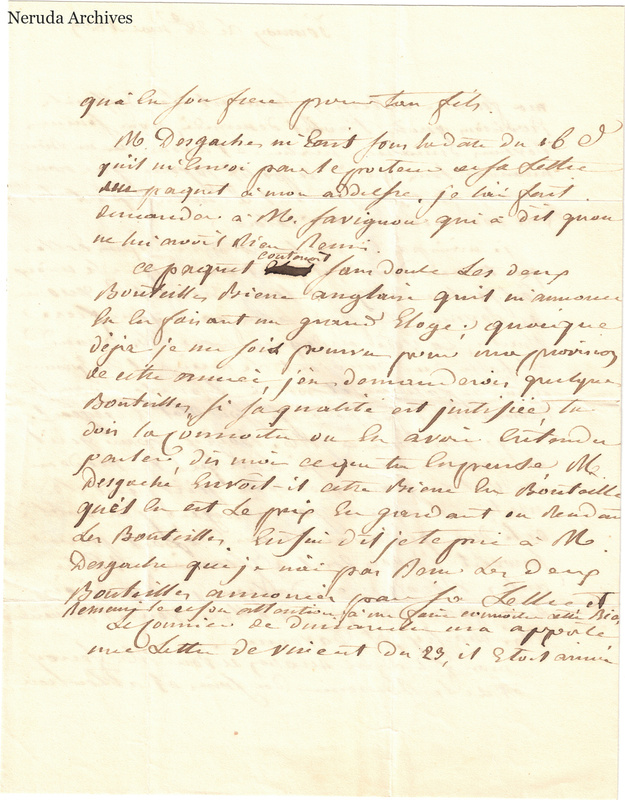 Neruda Archives
qu'à en son frere pour ton fils.
M. Desgaches m'écrit sous la date du 16 Ct
qu'il m'envoi par le porteur de sa Lettre
un paquet à mon addresse, je l'ai fait
demander à M. Savignon qui à dit qu'on
ne lui avoit Rien Remis.
ce paquet contenoit sans doute Les deux
Bouteilles Biere anglaise qu'il m'annonce
En En faisant un grand Eloge; quoique
déja je me sois pourvu pour ma provision
de cette année, j'en demanderois quelques
Bouteilles, si sa qualité est justifiée, tu
dois la Connoitre ou En avoir Entendu
parler, dis moi ce que tu En pense M.
Desgaches Envoit il cette Biere En Bouteille
quel En est Le prix En gardant ou Rendant
Les Bouteilles. Enfin dit je te prie à M.
Desgaches que je n'ai pas Recu Les deux
Bouteilles annoncées par sa Lettre et
Remercie le de son attention à me faire connoitre cette Biere
Le Courrier de dimanche m'a apporté
une Lettre de vincent du 23, il Etoit arrivé